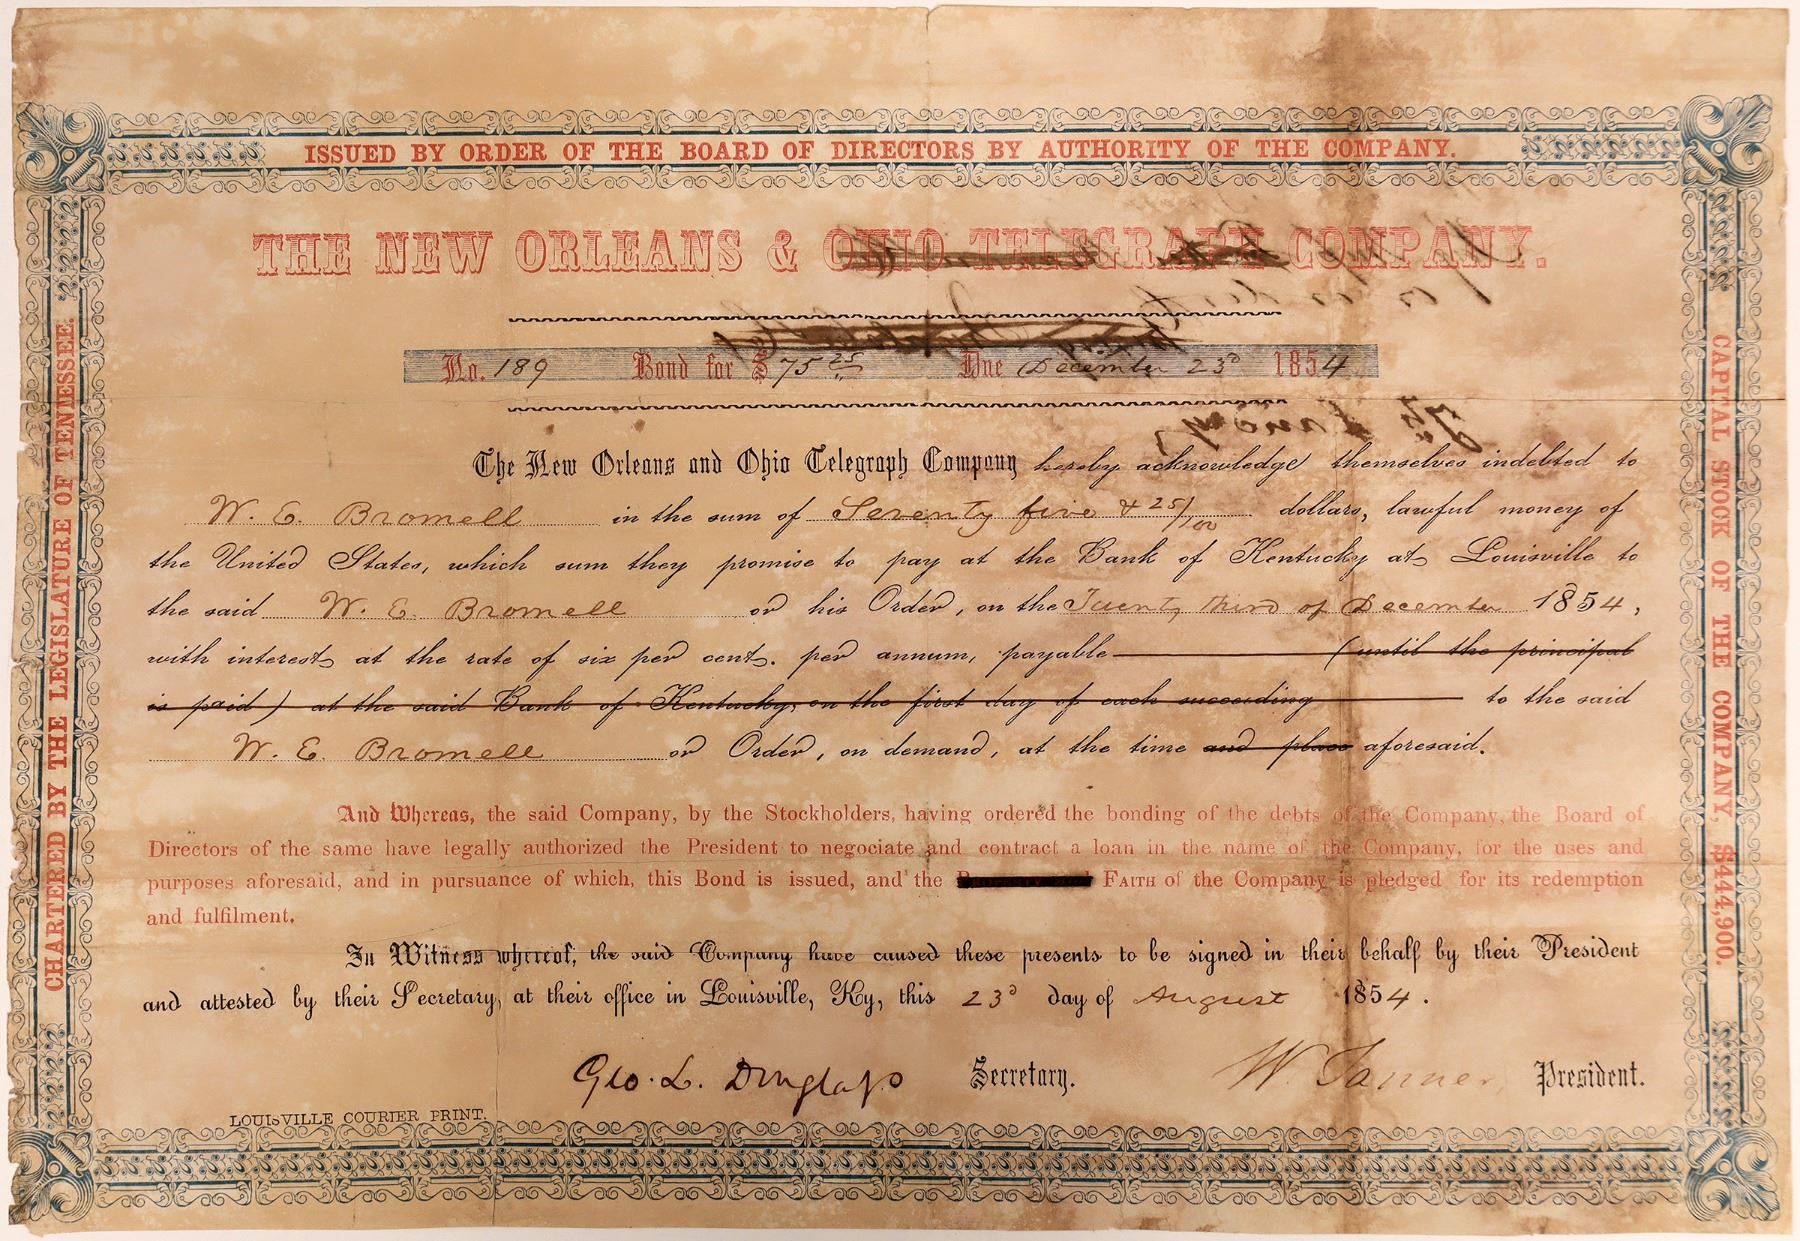 ISSUED BY ORDER OF THE BOARD OF DIRECTORS BY AUTHORITY OF THE COMPANY.
CHARTERED BY THE LEGISLATURE OF TENNESSEE.
CAPITAL STOCK OF THE COMPANY, $444,900.
THE NEW ORLEANS & OHIO TELEGRAPH COMPANY.
No. 189 Bond for $75 25 Due December 23d 1854
The New Orleans and Ohio Telegraph Company hereby acknowledge themselves indebted to
W. E. Bromell in the sum of Seventy five & 25/100 dollars, lawful money of
the United States, which sum they promise to pay at the Bank of Kentucky at Louisville to
the said W. E. Bromell or his Order, on the Twenty third of December 1854,
with interest at the rate of six per cent. per annum, payable (until the principal
is paid) at the said Bank of Kentucky, on the first day of each succeeding to the said
W. E. Bromell or Order, on demand, at the time and place aforesaid.
And Whereas, the said Company, by the Stockholders, having ordered the bonding of the debts of the Company, the Board of
Directors of the same have legally authorized the President to negociate and contract a loan in the name of the Company, for the uses and
purposes aforesaid, and in pursuance of which, this Bond is issued, and the FAITH of the Company is pledged for its redemption
and fulfilment.
In Witness whereof, the said Company have caused these presents to be signed in their behalf by their President
and attested by their Secretary, at their office in Louisville, Ky, this 23d day of August 1854.
Geo. L. Douglass Secretary. W. Tanner President.
LOUISVILLE COURIER PRINT.